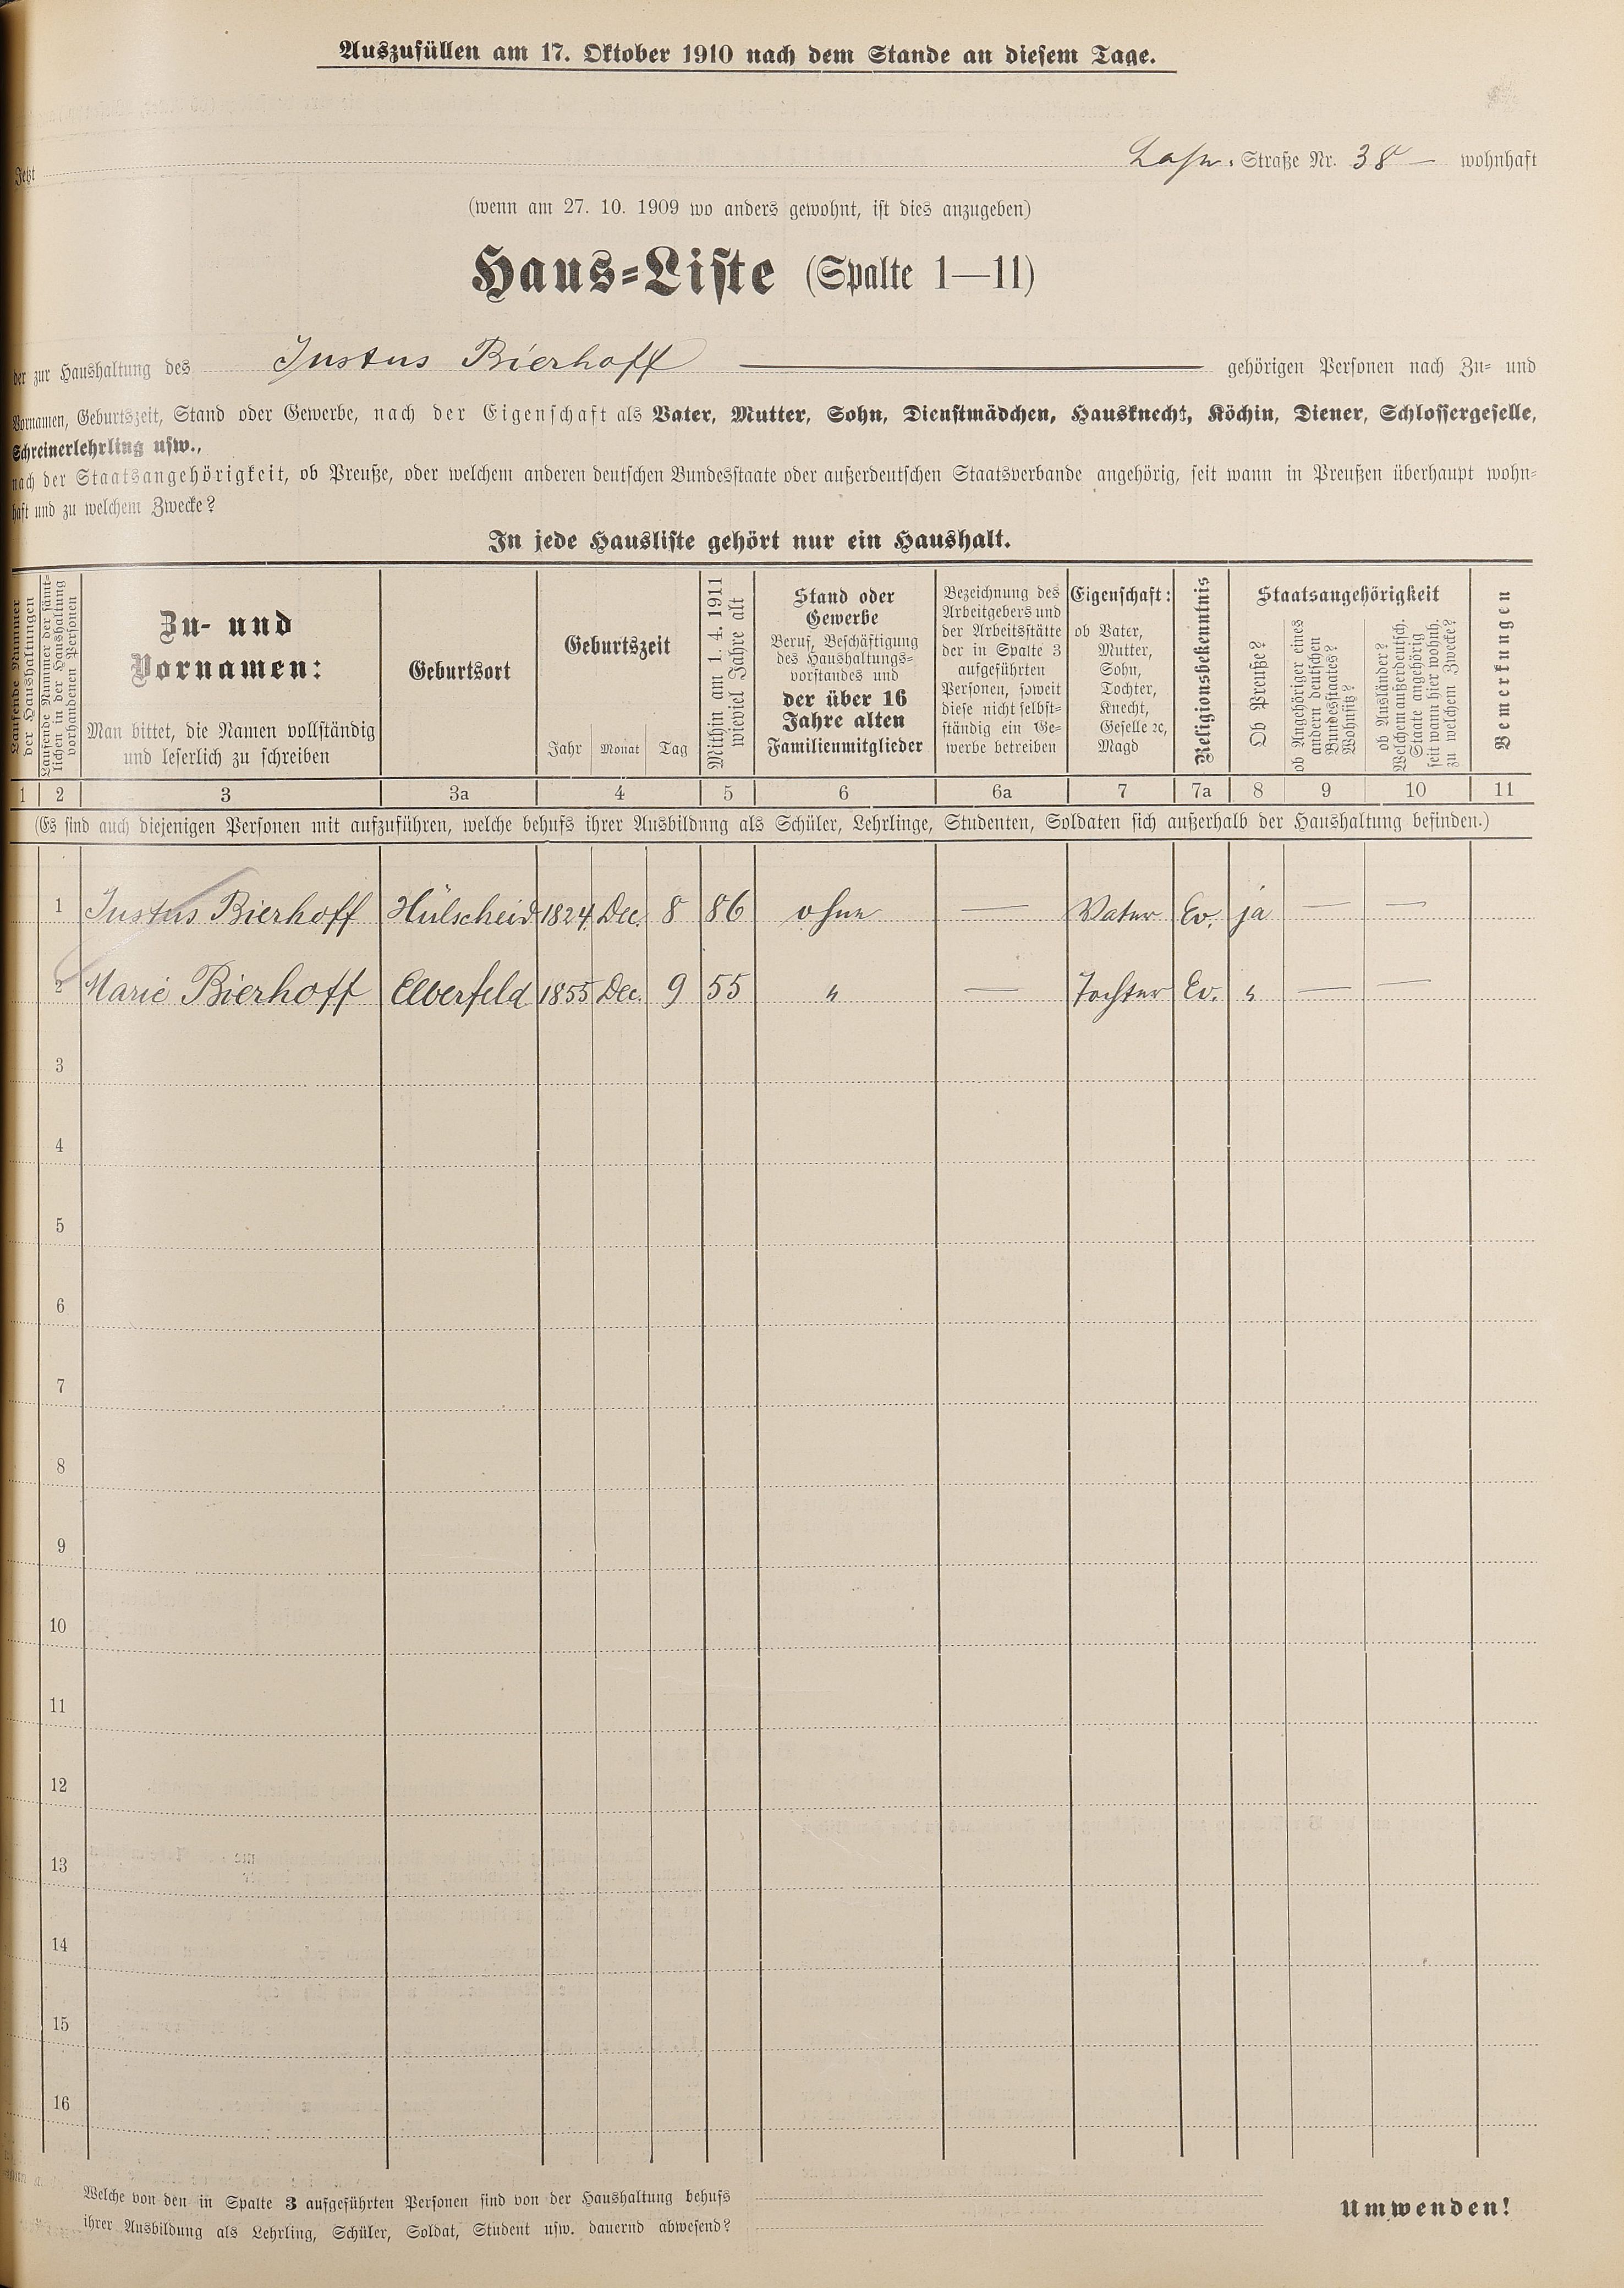 Auszufüllen am 17. Oktober 1910 nach dem Stande an diesem Tage.
Jetzt Straße Nr. 38 — wohnhaft
(wenn am 27. 10. 1909 wo anders gewohnt, ist dies anzugeben)
Haus-Liste (Spalte 1—11)
der zur Haushaltung des Justus Bierhoff — gehörigen Personen nach Zu- und
Vornamen, Geburtszeit, Stand oder Gewerbe, nach der Eigenschaft als Vater, Mutter, Sohn, Dienstmädchen, Hausknecht, Köchin, Diener, Schlossergeselle,
Schreinerlehrling usw.,
nach der Staatsangehörigkeit, ob Preuße, oder welchem anderen deutschen Bundesstaate oder außerdeutschen Staatsverbande angehörig, seit wann in Preußen überhaupt wohn-
haft und zu welchem Zwecke?
In jede Hausliste gehört nur ein Haushalt.
Laufende Nummer
der Haushaltungen
Laufende Nummer der sämt-
lichen in der Haushaltung
vorhandenen Personen
Zu- und
Vornamen:
Man bittet, die Namen vollständig
und leserlich zu schreiben
Geburtsort
Geburtszeit
Jahr Monat Tag
Mithin am 1. 4. 1911
wieviel Jahre alt
Stand oder
Gewerbe
Beruf, Beschäftigung
des Haushaltungs-
vorstandes und
der über 16
Jahre alten
Familienmitglieder
Bezeichnung des
Arbeitgebers und
der Arbeitsstätte
der in Spalte 3
aufgeführten
Personen, soweit
diese nicht selbst-
ständig ein Ge-
werbe betreiben
Eigenschaft:
ob Vater,
Mutter,
Sohn,
Tochter,
Knecht,
Geselle ꝛc,
Magd
Religionsbekenntnis
Staatsangehörigkeit
Ob Preuße?
ob Angehöriger eines
andern deutschen
Bundesstaates?
Wohnsitz?
ob Ausländer?
Welchem außerdeutsch.
Staate angehörig
seit wann hier wohnh.
zu welchem Zwecke?
Bemerkungen
1 2 3 3a 4 5 6 6a 7 7a 8 9 10 11
(Es sind auch diejenigen Personen mit aufzuführen, welche behufs ihrer Ausbildung als Schüler, Lehrlinge, Studenten, Soldaten sich außerhalb der Haushaltung befinden.)
1 Justus Bierhoff Hülscheid 1824 Dec. 8 86 ohne — Vater Ev. ja — —
2 Marie Bierhoff Elberfeld 1855 Dec. 9 55 " — Tochter Ev. " — —
3
4
5
6
7
8
9
10
11
12
13
14
15
16
Welche von den in Spalte 3 aufgeführten Personen sind von der Haushaltung behufs
ihrer Ausbildung als Lehrling, Schüler, Soldat, Student usw. dauernd abwesend?
Umwenden!